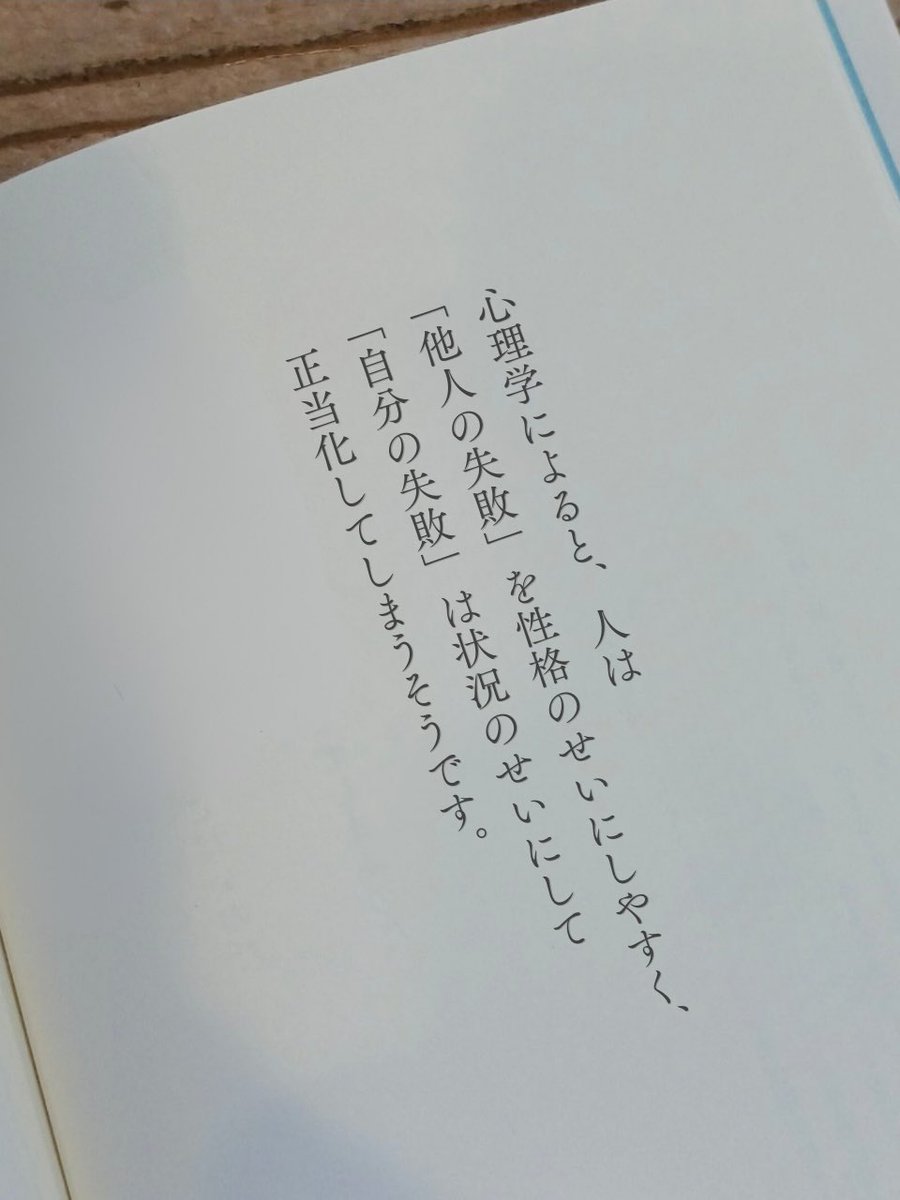 心理学によると、人は
「他人の失敗」を性格のせいにしやすく、
「自分の失敗」は状況のせいにして
正当化してしまうそうです。